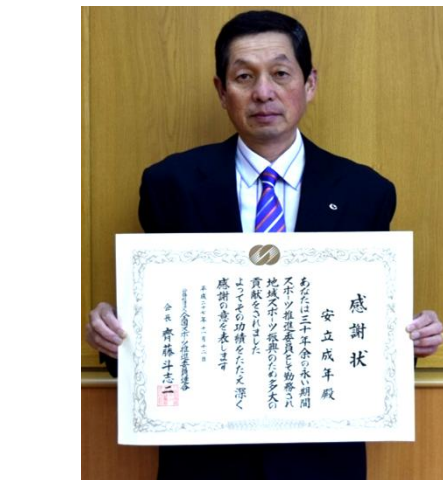 感謝状
安立成年殿
あなたは三十年余の永い期間
スポーツ推進委員として勤務され
地域スポーツ振興のため多大の
貢献をされました
よってその功績をたたえ深く
感謝の意を表します
平成二十七年十一月十二日
会長 齊藤斗志二